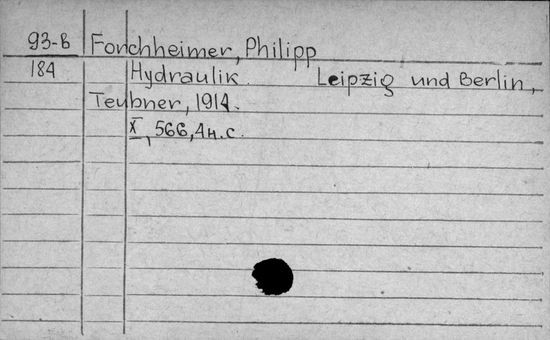 93-В Forchheimer, Philipp
184 Hydraulik Leipzig und Berlin,
Teubner, 1914.
X, 566, 4н.с.